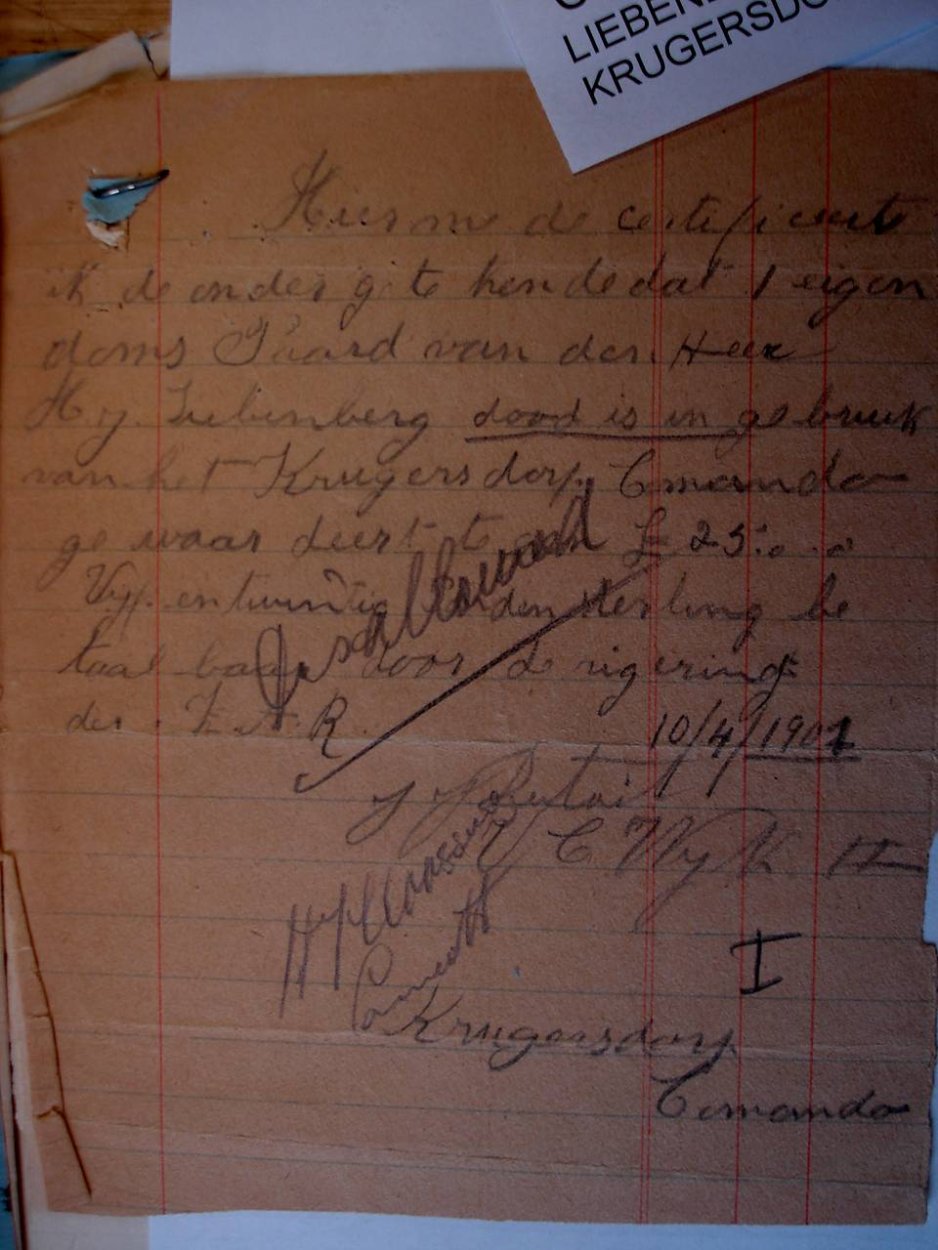 LIEBEN
KRUGERSDO
Hierme de certificeere
ik de onder ge te kende dat 1 eigen
doms Paard van den Heer
H. J. Liebenberg dood is in gebruik
van het Krugersdorp Comando
ge waar deert te £ 25:0.0
Vyf en twintig ponden sterling be
taal baar door de rigering
der Z A R. 10/4/1901
V C Wyk
I
Krugersdorp
Comando